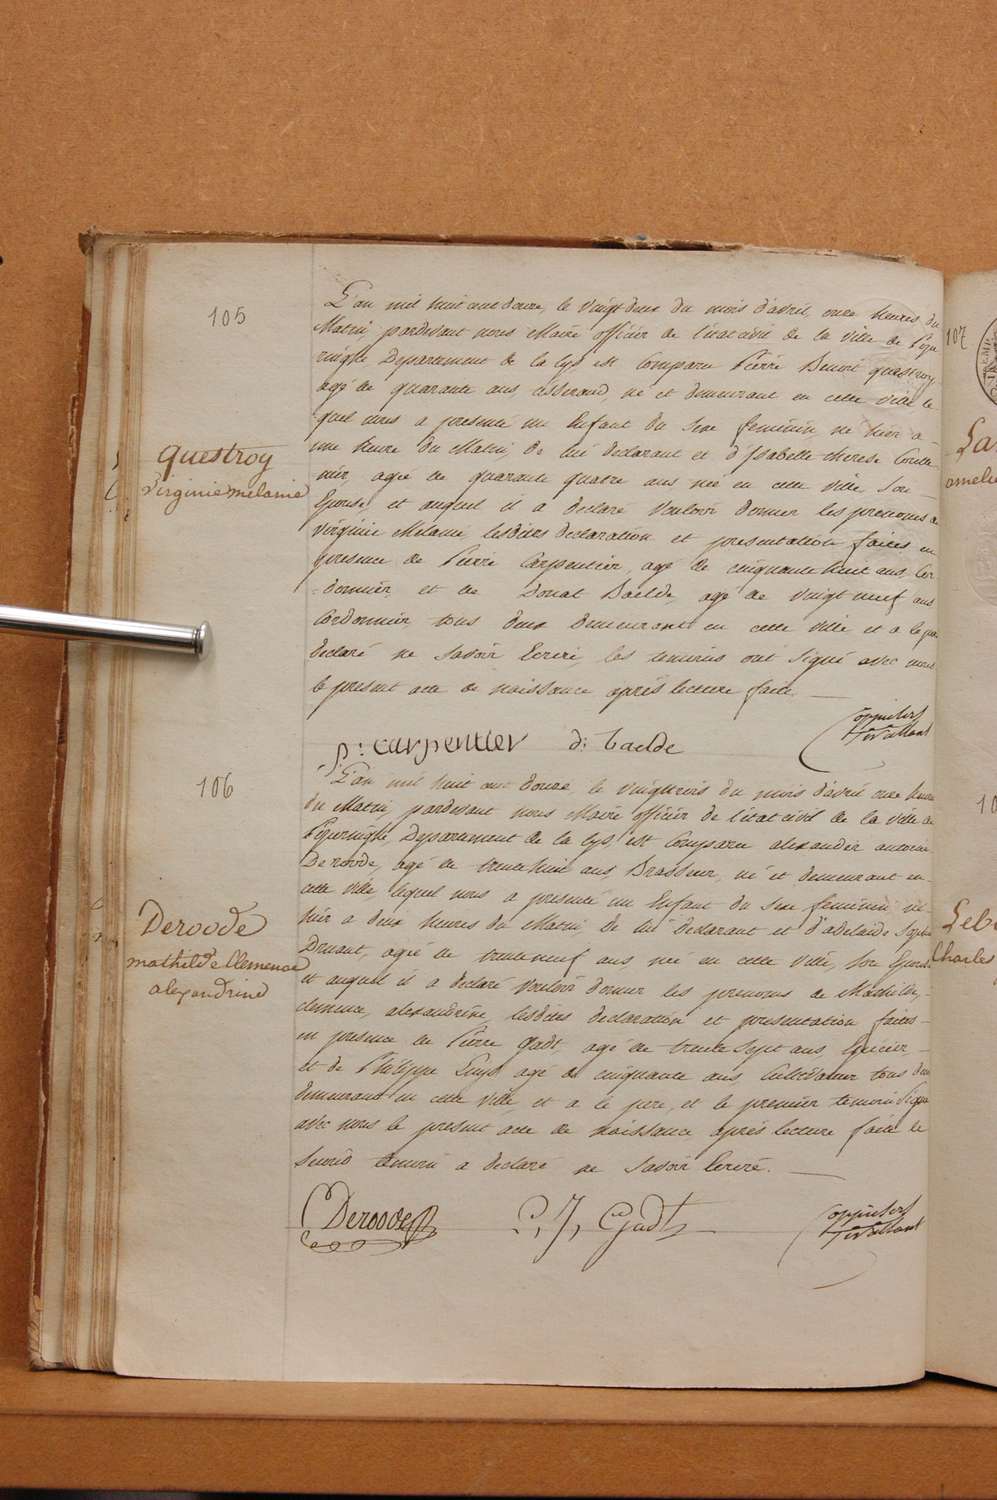 105
Questroy
Virginie melanie
L'an mil huit cent douze, le vingt deux du mois d'avril, onze heures du
Matin, pardevant nous Maire officier de l'état civil de la ville de Pope
ringhe Département de la Lys est Comparu Pierre Benoit questroy
agé de quarante ans, né et demeurant en cette ville le
quel nous a presenté un Enfant du Sexe feminin né hier a
une heure du Matin, de lui declarant et d'Isabelle therese
agée de quarante quatre ans née en cette ville Son
Epouse, et auquel il a declaré vouloir donner les prenoms de
Virginie Melanie lesdites declaration et presentation faites en
presence de Pierre Carpentier, agé de cinquante huit ans, Cor
=donnier, et de Donat Baelde, agé de vingt neuf ans
Cordonnier, tous deux demeurant en cette ville et a le pere
declaré ne Savoir Ecrire, les temoins ont Signé avec nous
le present acte de naissance après lecture faite.
p: carpentier d: baelde
106
Deroode
mathilde Clemence
alexandrine
L'an mil huit cent douze, le vingt trois du mois d'avril onze heures
du Matin, pardevant nous Maire officier de l'état civil de la ville de
Poperinghe, Département de la Lys, est Comparu alexandre antoine
Deroode, agé de trente huit ans Brasseur, né et demeurant en
cette ville, lequel nous a presenté un Enfant du Sexe feminin né
hier a deux heures du Matin, de lui declarant et d'adelaide Sophie
Druant, agée de trente neuf ans, née en cette ville, Son Epouse
et auquel il a declaré vouloir donner les prenoms de Mathilde,
clemence, alexandrine, lesdites declaration et presentation faites
en presence de Pierre Gadt agé de trente Sept ans, Epicier
et de Philippe Puys agé de cinquante ans Cultivateur tous deux
demeurant en cette ville, et a le pere, et le premier temoin Signé
avec nous le present acte de naissance après lecture faite le
Second temoin a declaré ne Savoir Ecrire.
Deroode P. J. Gadt
107
amelie
Charles